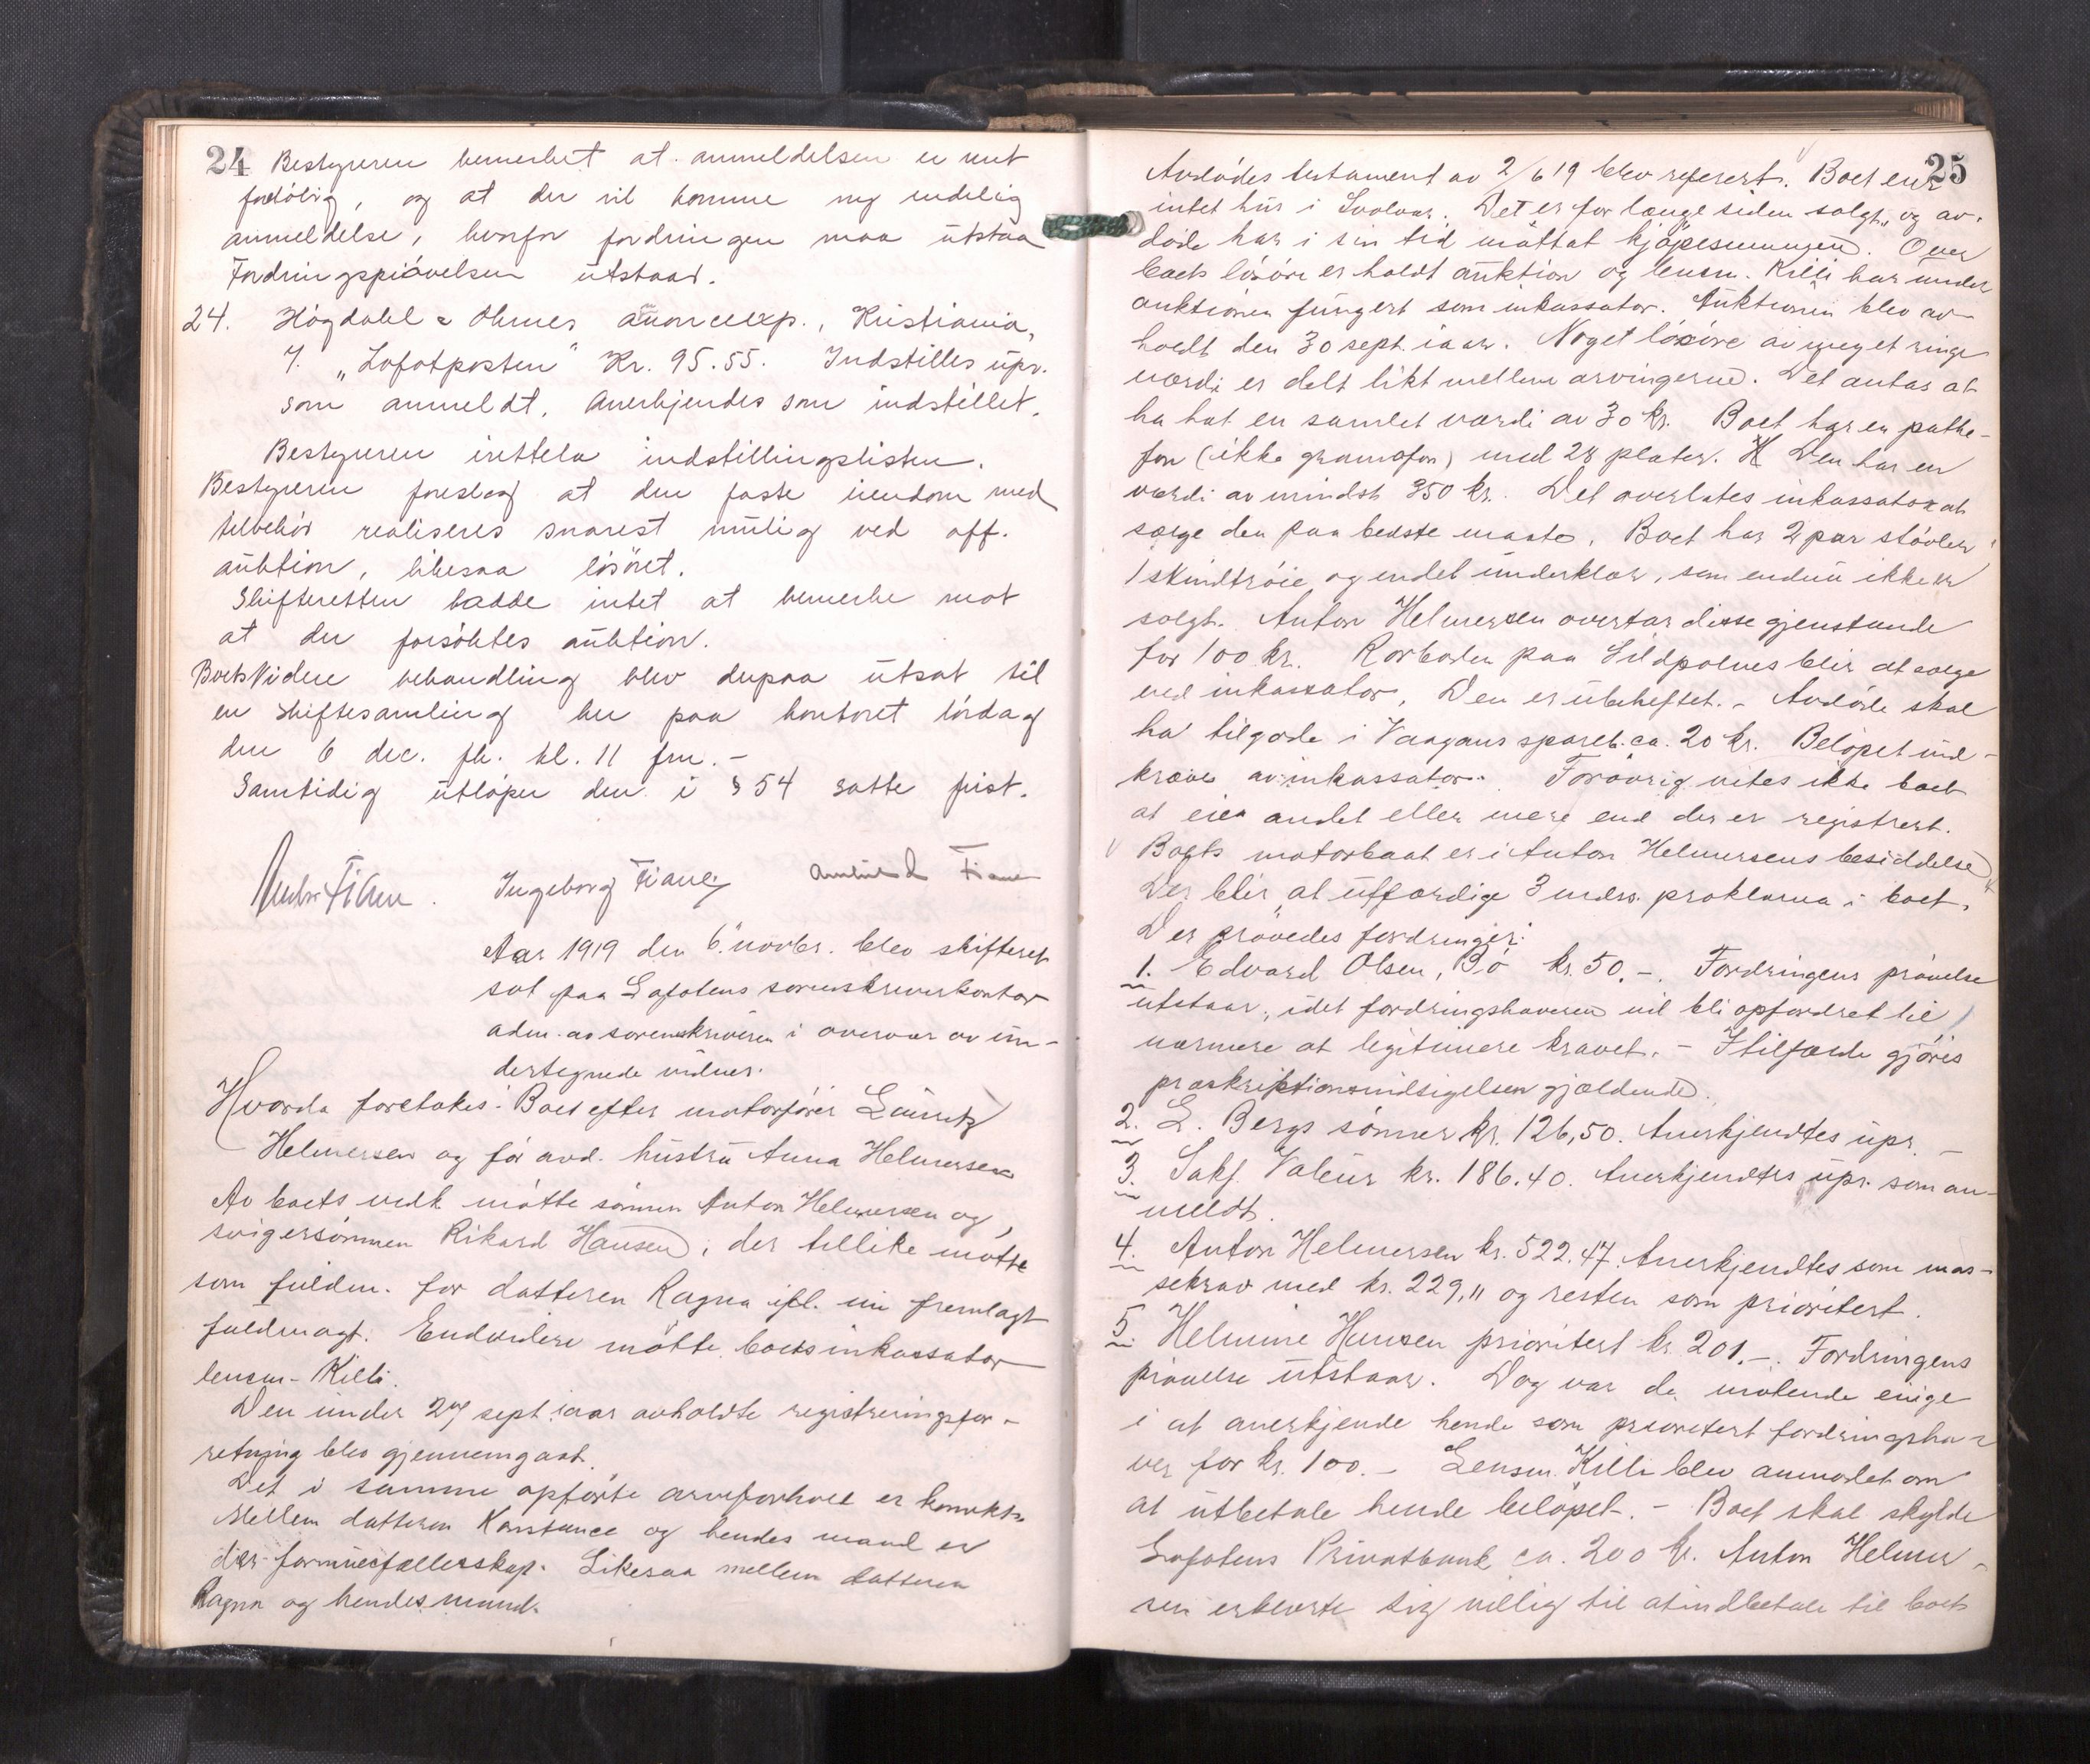 24 Bestyreren bemerket at anmeldelsen er kun
foreløbig, og at der vil komme ny endelig
anmeldelse, hvorfor fordringen maa utstaa
Fordringsprøvelsen utstaar.
24. Høgdahl & Ohmes annoncexp., Kristiania,
f. "Lofotposten" Kr. 95.55. Indstilles upr.
som anmeldt. Anerkjendes som indstillet.
Bestyreren irettela indstillingslisten.
Bestyreren foreslog at den faste eiendom med
tilbehør realiseres snarest mulig ved off.
auktion, likesaa løsøret.
Skifteretten hadde intet at bemerke mot
at der forsøktes auktion.
Boets videre behandling blev derpaa utsat til
en skiftesamling her paa kontoret lørdag
den 6 dec. fk. kl. 11 fm. -
Samtidig utløper den i § 54 satte frist.
Ingeborg Fiane
Aar 1919 den 6. novbr. blev skifteret
sat paa Lofotens sorenskriverkontor
adm. av sorenskriveren i overvær av un-
dertegnede vidner.
Hvorda foretokes: Boet efter motorfører Lauritz
Helmersen og før avd. hustru Anna Helmersen
Av boets vedk møtte sønnen Anton Helmersen og
svigersønnen Rikard Hansen, der tillike møtte
som fuldm. for datteren Ragna ifl. nu fremlagt
fuldmagt. Endvidere møtte boets inkassator
lensm. Killi.
Den under 27 sept. iaar avholdte registreringsfor-
retning blev gjennemgaat.
Det i samme opførte arveforhold er korrekt.
Mellem datteren Konstance og hendes mand er
der formuesfællesskap. Likesaa mellem datteren
Ragna og hendes mand.
25
Avdødes testament av 2/6 19 blev referert. Boet eier
intet hus i Svolvær. Det er for længe siden solgt, og av-
døde har i sin tid mottat kjøpesummen. Over
boets løsøre er holdt auktion og lensm. Killi har under
auktionen fungert som inkassator. Auktionen blev av-
holdt den 30 sept. iaar. Noget løsøre av meget ringe
værdi er delt likt mellem arvingerne. Det antas at
ha hat en samlet værdi av 30 kr. Boet har en pathe-
fon (ikke gramofon) med 28 plater. Den har en
værdi av mindst 350 kr. Det overlates inkassator at
sælge den paa bedste maate. Boet har 2 par støvler
1 skindtrøie og endel underklær, som endnu ikke er
solgt. Anton Helmersen overtar disse gjenstande
for 100 kr. Rorboden paa Sildpolnes blir at sælge
ved inkassator. Den er ubeheftet. - Avdøde skal
ha tilgode i Vaagans spareb. ca. 20 kr. Beløpet ind-
kræves av inkassator. Forøvrig vites ikke boet
at eie andet eller mere end der er registrert.
Boets motorbaat er i Anton Helmersens besiddelse.
Der blir at utfærdige 3 mdrs. proklama i boet.
Der prøvedes fordringer:
1. Edvard Olsen, Bø kr. 50.-. Fordringens prøvelse
utstaar, idet fordringshaveren vil bli opfordret til
nærmere at legitimere kravet. - Itilfælde gjøres
præskriptionsindsigelsen gjældende.
2. L. Bergs sønner kr. 126,50. Anerkjendtes upr.
3. Sakf. Valeur kr. 186.40. Anerkjendtes upr. som an-
meldt.
4. Anton Helmersen kr. 522.47. Anerkjendtes som mas-
sekrav med kr. 229,11 og resten som prioritert.
5. Helmine Hansen prioritert kr. 201.-. Fordringens
prøvelse utstaar. Dog var de møtende enige
i at anerkjende hende som prioritert fordringsha-
ver for kr. 100.- Lensm. Killi blev anmodet om
at utbetale hende beløpet. - Boet skal skylde
Lofotens Privatbank ca. 200 kr. Anton Helmer-
sen erklærte sig villig til at indbetale til boets